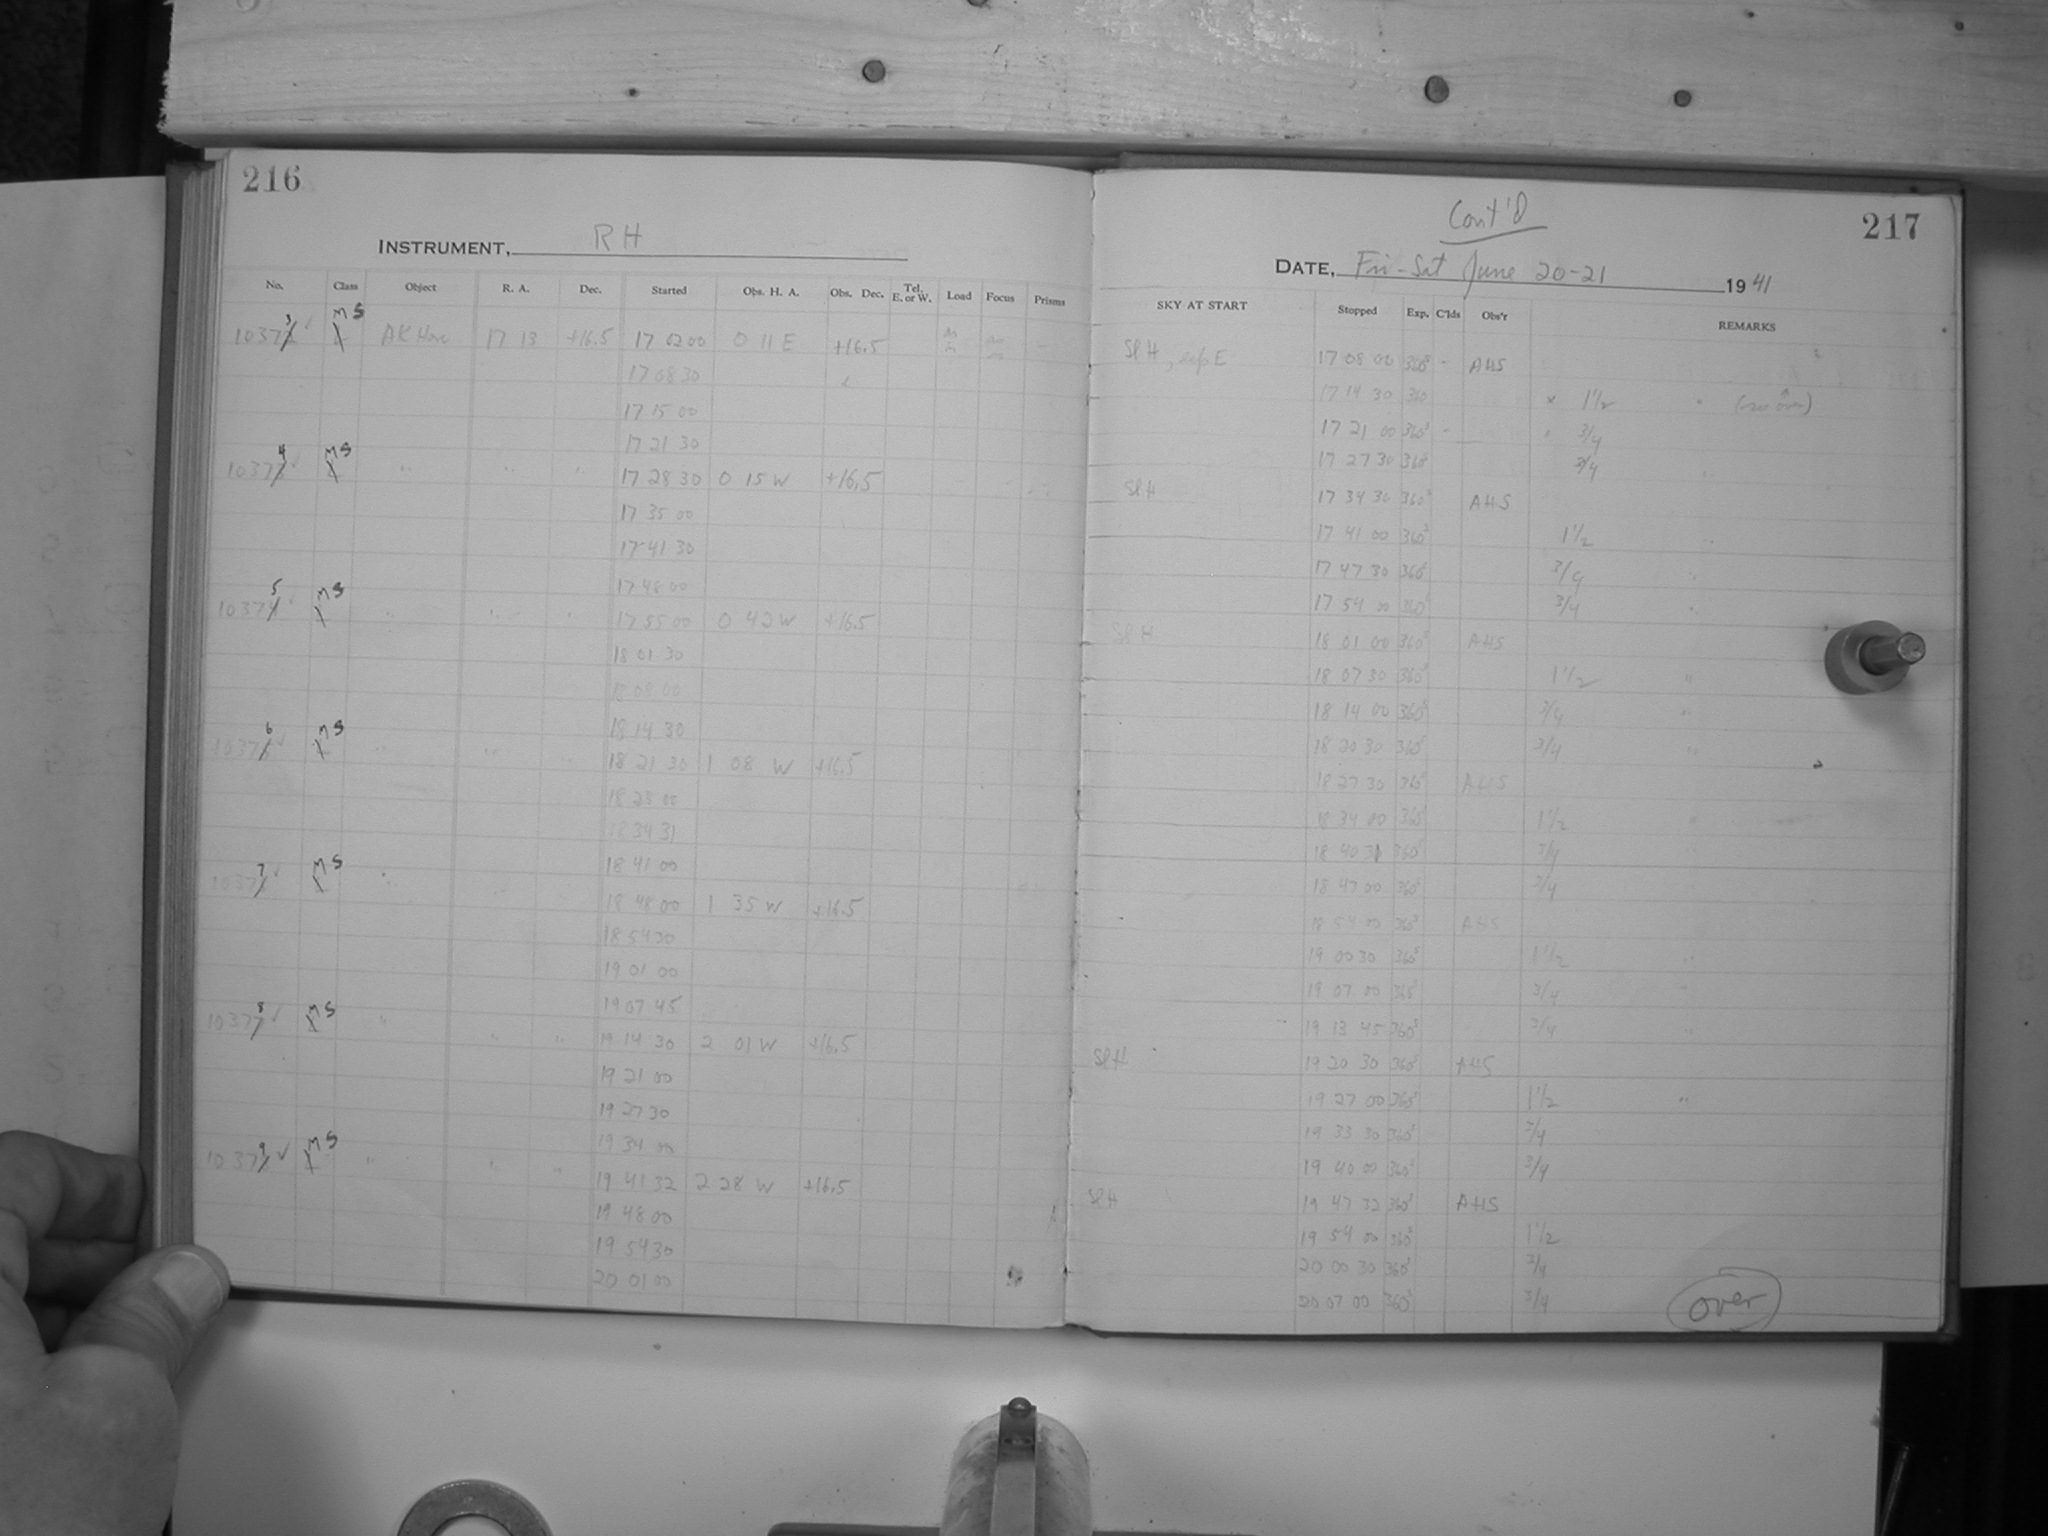 216
INSTRUMENT, RH
No. Class Object R. A. Dec. Started Obs. H. A. Obs. Dec. Tel. E. or W. Load Focus Prisms
10373 MS AK Herc 17 13 +16.5 17 02 00 0 11 E +16.5
17 08 30
17 15 00
17 21 30
10374 MS " " " 17 28 30 0 15 W +16.5
17 35 00
17 41 30
17 48 00
10375 MS " " " 17 55 00 0 42 W +16.5
18 01 30
18 08 00
18 14 30
10376 MS " " " 18 21 30 1 08 W +16.5
18 28 00
18 34 31
18 41 00
10377 MS " 18 48 00 1 35 W +16.5
18 54 30
19 01 00
19 07 45
10378 MS " " " 19 14 30 2 01 W +16.5
19 21 00
19 27 30
19 34 00
10379 MS " " " 19 41 32 2 28 W +16.5
19 48 00
19 54 30
20 01 00
Cont'd
217
DATE, Fri-Sat June 20-21 1941
SKY AT START Stopped Exp. C'lds Obs'r REMARKS
Sl H, 17 08 00 360s - AHS
17 14 30 360 1½ " (no over)
17 21 00 360s - " 3/4
17 27 30 360 3/4 "
Sl H 17 34 30 360s AHS
17 41 00 360s 1½ "
17 47 30 360s 3/4 "
17 54 00 360s 3/4 "
Sl H 18 01 00 360s AHS
18 07 30 360s 1½ "
18 14 00 360s 3/4 "
18 20 30 360s 3/4 "
18 27 30 360s AHS
18 34 00 360s 1½ "
18 40 31 360s 3/4
18 47 00 360s 3/4
18 54 00 360s AHS
19 00 30 360s 1½ "
19 07 00 360s 3/4 "
19 13 45 360s 3/4 "
Sl H 19 20 30 360s AHS
19 27 00 360s 1½ "
19 33 30 360s 3/4
19 40 00 360s 3/4
Sl H 19 47 32 360s AHS
19 54 00 360s 1½
20 00 30 360s 3/4
20 07 00 360s 3/4
over